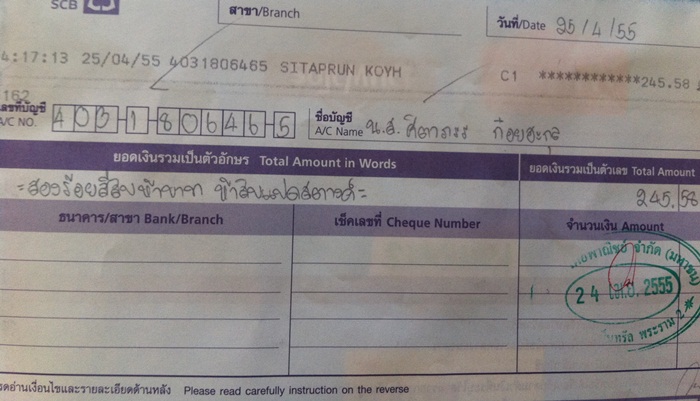 SCB
สาขา/Branch
วันที่/Date 25/4/55
4:17:13 25/04/55 4031806465 SITAPRUN KOYH C1 ************245.58
162
เลขที่บัญชี
A/C NO. 403-1-80646-5
ชื่อบัญชี
A/C Name น.ส.
ยอดเงินรวมเป็นตัวอักษร Total Amount in Words
ยอดเงินรวมเป็นตัวเลข Total Amount
=สองร้อยสี่สิบห้าบาท ห้าสิบแปดสตางค์=
245.58
ธนาคาร/สาขา Bank/Branch
เช็คเลขที่ Cheque Number
จำนวนเงิน Amount
ไทยพาณิชย์ จำกัด (มหาชน)
24 เม.ย. 2555
เซ็นทรัล พระราม 2
รดอ่านเงื่อนไขและรายละเอียดด้านหลัง Please read carefully instruction on the reverse